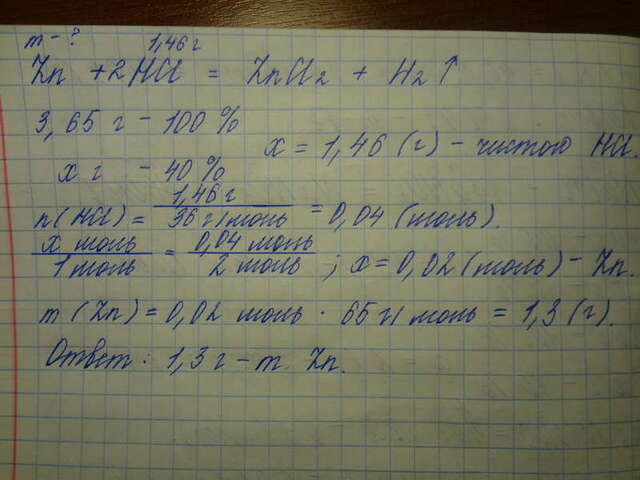 m - ?
1,46 г
Zn + 2HCl = ZnCl₂ + H₂ ↑
3,65 г - 100 %
x = 1,46 (г) - чистого HCl.
x г - 40 %
n(HCl) = 1,46 г / 36 г/моль = 0,04 (моль).
x моль / 1 моль = 0,04 моль / 2 моль ; x = 0,02 (моль) - Zn.
m (Zn) = 0,02 моль · 65 г/моль = 1,3 (г).
Ответ: 1,3 г - m Zn.